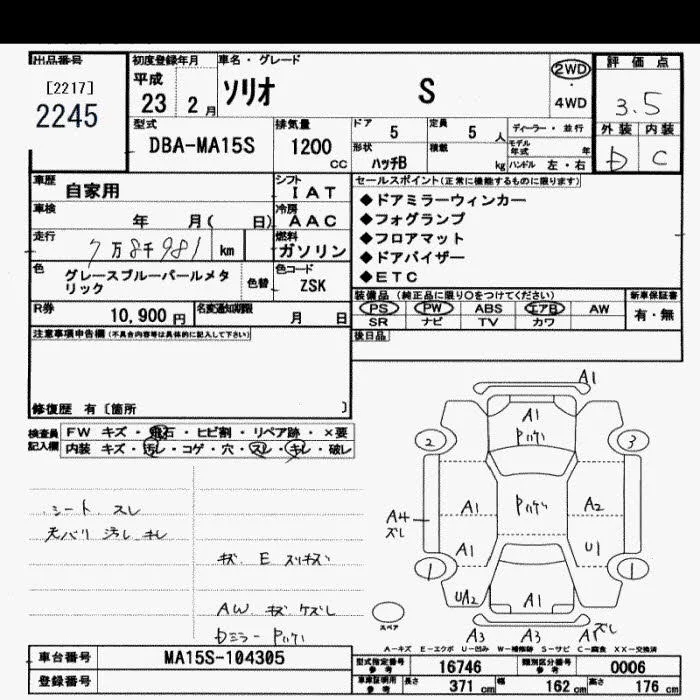 出品番号 初度登録年月 車名・グレード 評価点
[2217] 平成 ソリオ S 2WD
2245 23 2月 ・ 4WD 3.5
型式 排気量 ドア 5 定員 5人 ディーラー・並行 外装 内装
DBA-MA15S 1200cc 形状 ハッチB 積載 kg モデル年式 年 ハンドル 左・右 b C
車歴 自家用 シフト IAT セールスポイント(正常に機能するものに限ります)
車検 年 月( 日) 冷房 AAC ◆ドアミラーウィンカー
◆フォグランプ
走行 7万8千981 km 燃料 ガソリン ◆フロアマット
◆ドアバイザー
色 グレースブルーパールメタ 色替 色コード ◆ETC
リック ZSK
装備品(純正品に限り○をつけてください) 新車保証書
R券 10,900円 名変通知期限 月 日 PS PW ABS エアB AW 有・無
SR ナビ TV カワ
注意事項申告欄(不具合内容等は具体的に記入して下さい) 後日品
修復歴 有〔箇所 〕
検査員 FW キズ・飛石・ヒビ割・リペア跡・×要
記入欄 内装 キズ・汚レ・コゲ・穴・スレ・キレ・破レ
A1
A1
2 3
シート スレ
天バリ 汚レ キレ
A1 A2
A4
ズレ
A1 U1
キズ E スリキズ
1 1
UA2 A1
AW キズ ケズレ
スペア A3 A3 A1ズレ
A-キズ E-エクボ U-凹み W-補修跡 S-サビ C-腐食 XX-交換済
車台番号 MA15S-104305 型式指定番号 参考 16746 類別区分番号 参考 0006
登録番号 車庫証明用 参考 長さ 371 cm 幅 162 cm 高さ 176 cm